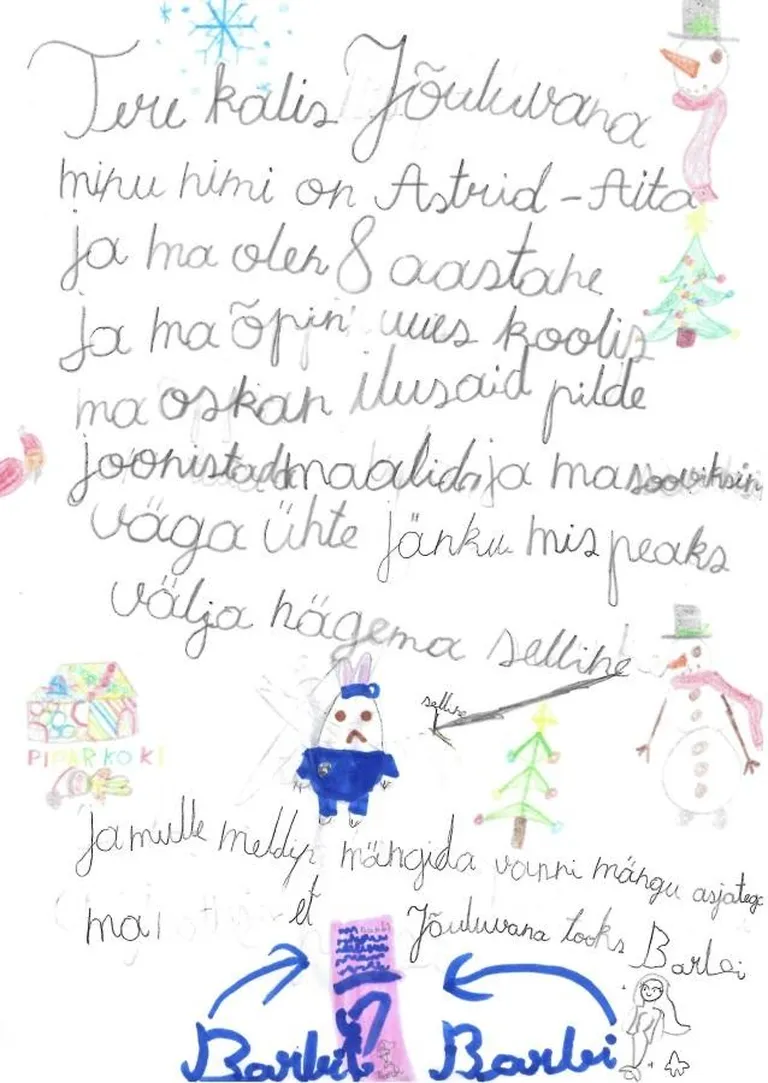 Tere kallis Jõuluvana
minu nimi on Astrid-Aita
ja ma olen 8 aastane
ja ma õpin uues koolis
ma oskan ilusaid pilde
joonistada maalida ja ma sooviksin
väga ühte jänku mis peaks
välja nägema selline
selline
PIPARKOKI
ja mulle meldip mängida vanni mängu asjatega
ma et Jõuluvana tooks Barbi
Barbit Barbi